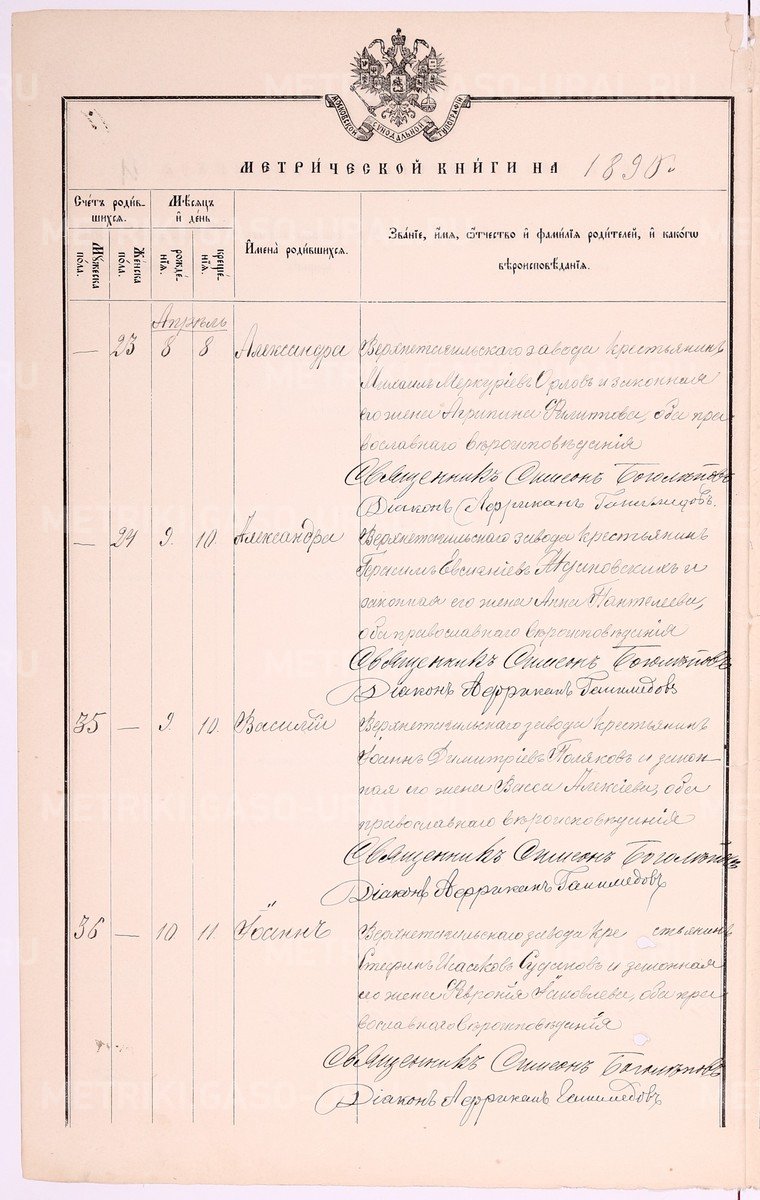 МОСКОВСКОЙ СѴНОДАЛЬНОЙ ТѴПОГРАФІИ
МЕТРИ́ЧЕСКОЙ КНИ́ГИ НА 1890.
Сче́тъ роди́в-
шихся.
Мꙋжеска
пола.
Же́нска
пола.
Мѣсяцъ
и҆ де́нь
рожде-
нїѧ.
креще-
нїѧ.
И҆мена̀ роди́вшихся.
Зва́нїе, и҆́мя, ѻ҆́тчество и҆ фами́лїя роди́телей, и҆ како́гѡ
вѣроисповѣ́данїя.
Апрѣль
— 23 8 8 Александра Верхнетагильскаго завода крестьянинъ
Михаилъ Меркуріевъ Орловъ и законная
его жена Агрипина Филиппова, оба пра-
вославнаго вѣроисповѣданія
Священникъ Симеонъ Боголѣповъ
Діаконъ Африканъ Ганимедовъ.
— 24 9. 10. Александра Верхнетагильскаго завода крестьянинъ
Герасимъ Евсигніевъ и
законная его жена Анна Пантелеева,
оба православнаго вѣроисповѣданія
Священникъ Симеонъ Боголѣповъ
Діаконъ Африканъ Ганимедовъ
35 — 9. 10. Василій Верхнетагильскаго завода крестьянинъ
Іоаннъ Димитріевъ Поляковъ и закон-
ная его жена Васса Алексіева, оба
православнаго вѣроисповѣданія
Священникъ Симеонъ Боголѣповъ
Діаконъ Африканъ Ганимедовъ
36 — 10. 11. Іоаннъ Верхнетагильскаго завода крестьянинъ
Стефанъ Исааковъ и законная
его жена Февронія Іаковлева, оба пра-
вославнаго вѣроисповѣданія
Священникъ Симеонъ Боголѣповъ
Діаконъ Африканъ Ганимедовъ